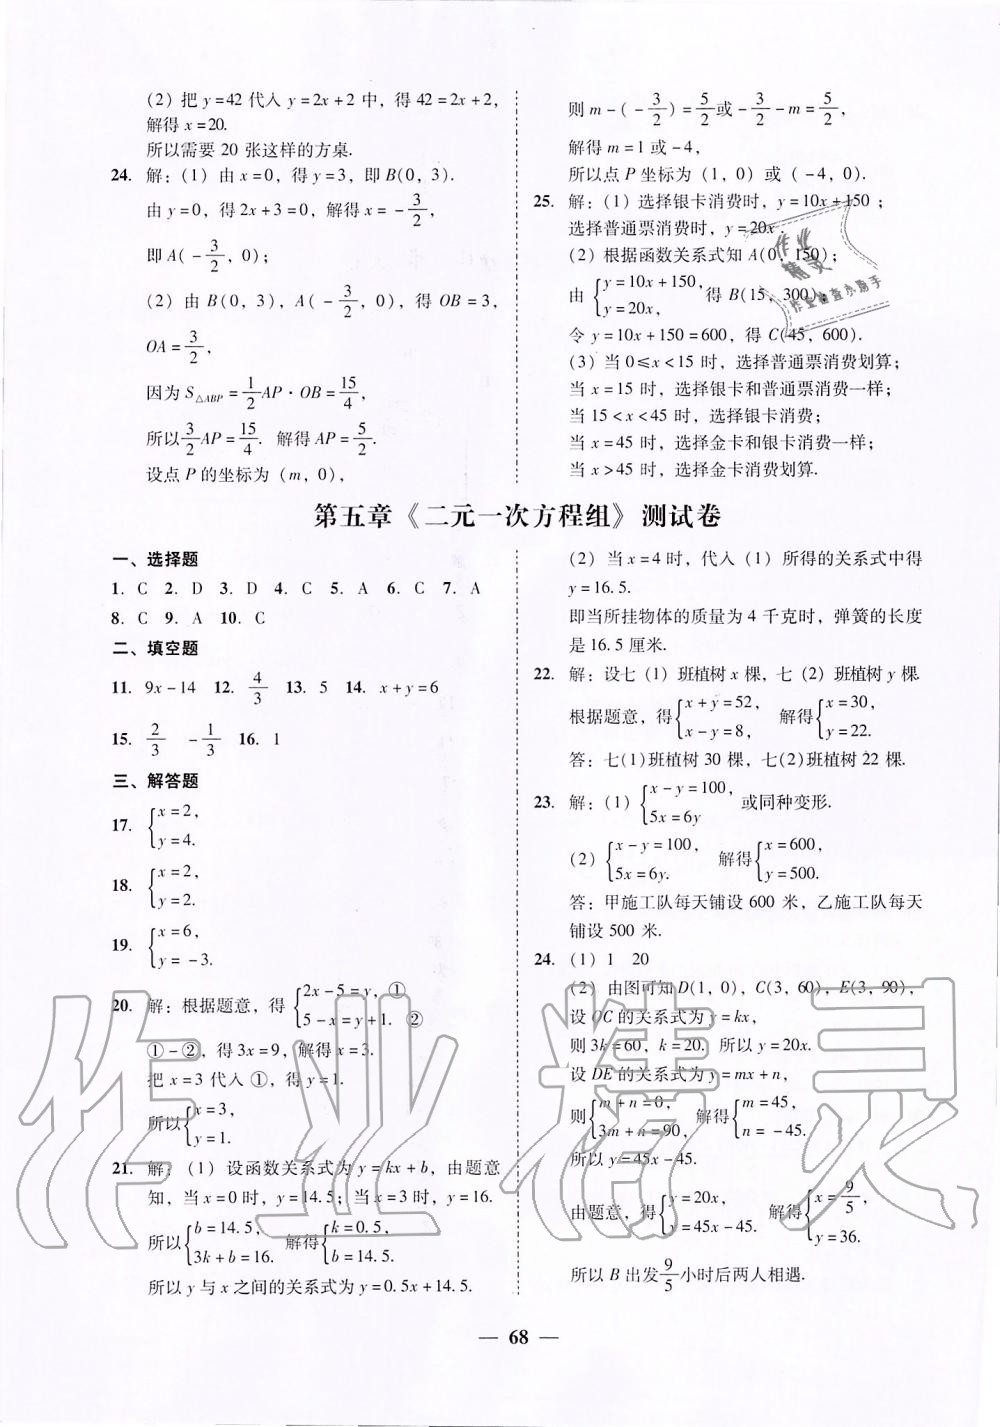 (2) 把 y=42 代入 y=2x+2 中，得 42=2x+2，
解得 x=20.
所以需要 20 张这样的方桌.
24. 解：(1) 由 x=0，得 y=3，即 B(0，3).
由 y=0，得 2x+3=0，解得 x=-3/2，
即 A(-3/2，0)；
(2) 由 B(0，3)，A(-3/2，0)，得 OB=3，
OA=3/2，
因为 S△ABP=1/2 AP·OB=15/4，
所以 3/2 AP=15/4. 解得 AP=5/2.
设点 P 的坐标为 (m，0)，
则 m-(-3/2)=5/2 或 -3/2-m=5/2，
解得 m=1 或 -4，
所以点 P 坐标为 (1，0) 或 (-4，0).
25. 解：(1) 选择银卡消费时，y=10x+150；
选择普通票消费时，y=20x.
(2) 根据函数关系式知 A(0，150)；
由 {y=10x+150，y=20x， 得 B(15，300)；
令 y=10x+150=600，得 C(45，600).
(3) 当 0≤x<15 时，选择普通票消费划算；
当 x=15 时，选择银卡和普通票消费一样；
当 15<x<45 时，选择银卡消费；
当 x=45 时，选择金卡和银卡消费一样；
当 x>45 时，选择金卡消费划算.
作业
精灵
作业检查小助手
第五章《二元一次方程组》测试卷
一、选择题
1. C 2. D 3. D 4. C 5. A 6. C 7. A
8. C 9. A 10. C
二、填空题
11. 9x-14 12. 4/3 13. 5 14. x+y=6
15. 2/3 -1/3 16. 1
三、解答题
17. {x=2，y=4.
18. {x=2，y=2.
19. {x=6，y=-3.
20. 解：根据题意，得 {2x-5=y，① 5-x=y+1. ②
①-②，得 3x=9，解得 x=3.
把 x=3 代入 ①，得 y=1.
所以 {x=3，y=1.
21. 解：(1) 设函数关系式为 y=kx+b，由题意
知，当 x=0 时，y=14.5；当 x=3 时，y=16.
所以 {b=14.5，3k+b=16. 解得 {k=0.5，b=14.5.
所以 y 与 x 之间的关系式为 y=0.5x+14.5.
(2) 当 x=4 时，代入 (1) 所得的关系式中得
y=16.5.
即当所挂物体的质量为 4 千克时，弹簧的长度
是 16.5 厘米.
22. 解：设七 (1) 班植树 x 棵，七 (2) 班植树 y 棵.
根据题意，得 {x+y=52，x-y=8， 解得 {x=30，y=22.
答：七(1)班植树 30 棵，七(2)班植树 22 棵.
23. 解：(1) {x-y=100，5x=6y 或同种变形.
(2) {x-y=100，5x=6y. 解得 {x=600，y=500.
答：甲施工队每天铺设 600 米，乙施工队每天
铺设 500 米.
24. (1) 1 20
(2) 由图可知 D(1，0)，C(3，60)，E(3，90)，
设 OC 的关系式为 y=kx，
则 3k=60，k=20. 所以 y=20x.
设 DE 的关系式为 y=mx+n，
则 {m+n=0，3m+n=90， 解得 {m=45，n=-45.
所以 y=45x-45.
由题意，得 {y=20x，y=45x-45. 解得 {x=9/5，y=36.
所以 B 出发 9/5 小时后两人相遇.
作业精灵
— 68 —